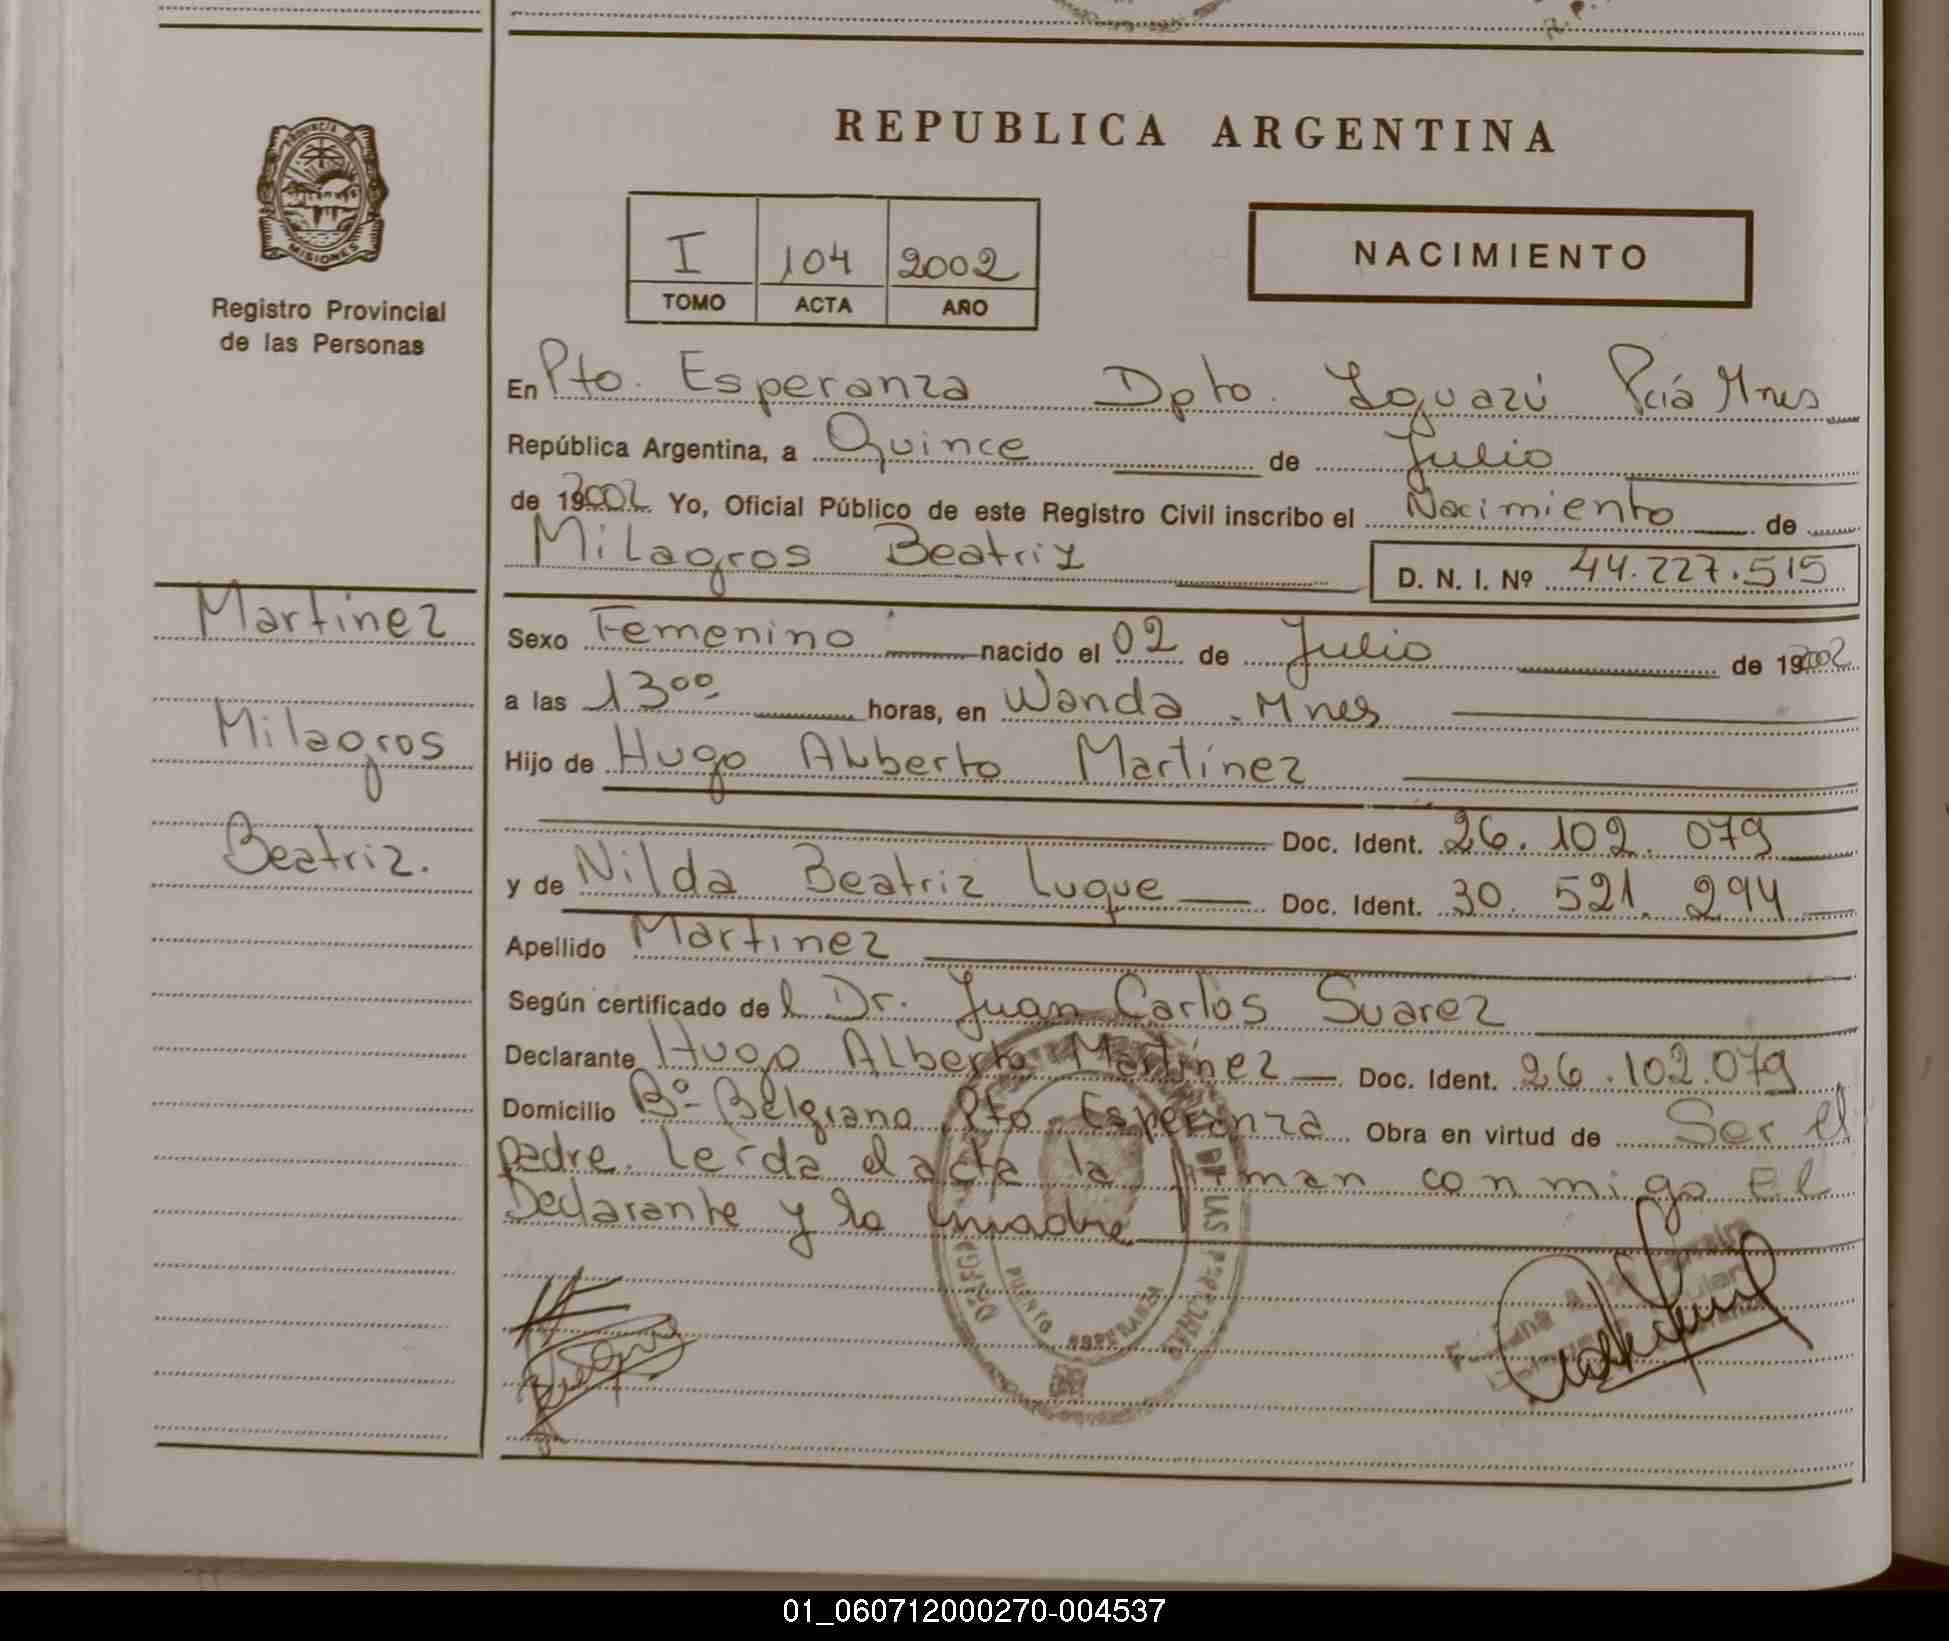 REPUBLICA ARGENTINA
PROVINCIA DE
MISIONES
Registro Provincial
de las Personas
I 104 2002
TOMO ACTA AÑO
NACIMIENTO
En Pto. Esperanza Dpto. Iguazú Pcia Mnes
República Argentina, a Quince de Julio
de 192002 Yo, Oficial Público de este Registro Civil inscribo el Nacimiento de
Milagros Beatriz D. N. I. Nº 44.227.515
Martinez
Milagros
Beatriz.
Sexo Femenino nacido el 02 de Julio de 192002
a las 13 00 horas, en Wanda - Mnes
Hijo de Hugo Alberto Martínez
Doc. Ident. 26.102.079
y de Nilda Beatriz Luque Doc. Ident. 30.521.294
Apellido Martinez
Según certificado de l Dr. Juan Carlos Suarez
Declarante Hugo Alberto Martínez Doc. Ident. 26.102.079
Domicilio Bº Belgrano Pto Esperanza Obra en virtud de Ser el
padre. Leída el acta la firman conmigo El
Declarante y la madre
DE LAS PERSONAS
PUERTO ESPERANZA
01_060712000270-004537